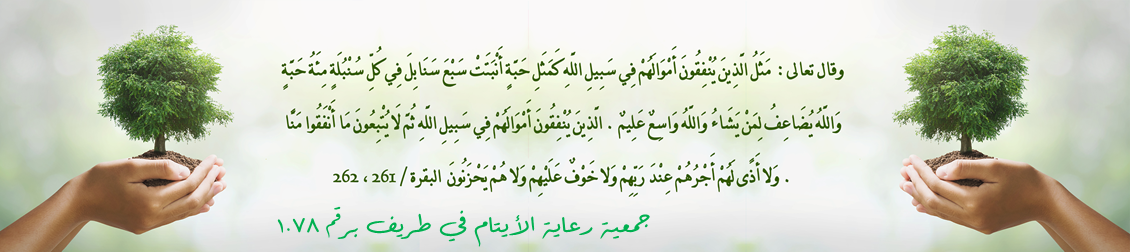 وقال تعالى : مَثَلُ الَّذِينَ يُنْفِقُونَ أَمْوَالَهُمْ فِي سَبِيلِ اللَّهِ كَمَثَلِ حَبَّةٍ أَنْبَتَتْ سَبْعَ سَنَابِلَ فِي كُلِّ سُنْبُلَةٍ مِئَةُ حَبَّةٍ
وَاللَّهُ يُضَاعِفُ لِمَنْ يَشَاءُ وَاللَّهُ وَاسِعٌ عَلِيمٌ . الَّذِينَ يُنْفِقُونَ أَمْوَالَهُمْ فِي سَبِيلِ اللَّهِ ثُمَّ لَا يُتْبِعُونَ مَا أَنْفَقُوا مَنًّا
. وَلا أَذًى لَهُمْ أَجْرُهُمْ عِنْدَ رَبِّهِمْ وَلا خَوْفٌ عَلَيْهِمْ وَلا هُمْ يَحْزَنُونَ البقرة / 261 ، 262
جمعية رعاية الأيتام في طريف برقم ١٠٧٨